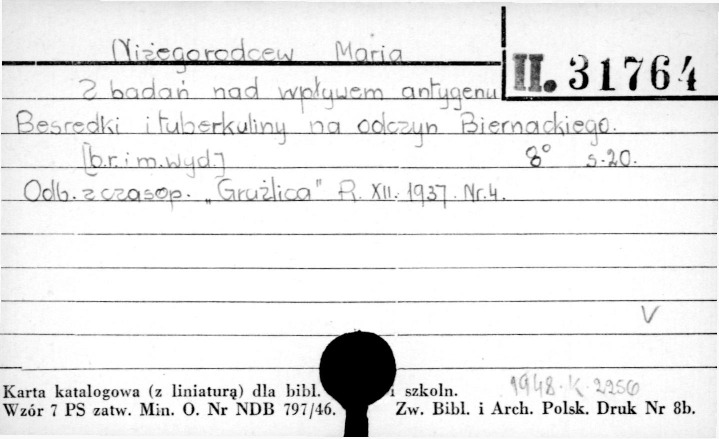 Niżegorodcew Maria
II. 31764
Z badań nad wpływem antygenu
Besredki i tuberkuliny na odczyn Biernackiego.
[b.r.i m.wyd.] 8° s.20.
Odb. z czasop. „Gruźlica" R. XII. 1937. Nr.4.
V
1948.K.2256
Karta katalogowa (z liniaturą) dla bibl. i szkoln.
Wzór 7 PS zatw. Min. O. Nr NDB 797/46. Zw. Bibl. i Arch. Polsk. Druk Nr 8b.